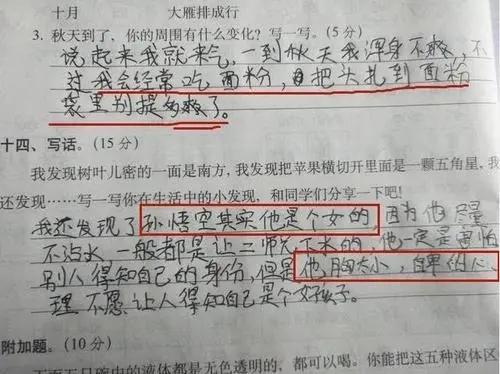 十月 大雁排成行
3. 秋天到了，你的周围有什么变化？写一写。(5分)
说起来我就来气，一到秋天我浑身不爽，不
过我会经常吃面粉，把头扎到面粉
袋里别提多爽了。
十四、写话。(15分)
我发现树叶儿密的一面是南方，我发现把苹果横切开里面是一颗五角星，我
还发现……写一写你在生活中的小发现，和同学们分享一下吧！
我还发现了孙悟空其实他是个女的，因为他尽量
不沾水，一般都是让二师兄下水的，他一定是害怕
别人得知自己的身份，但是他胸太小，自卑的心
理不愿让人得知自己是个女孩子。
附加题。(10分)